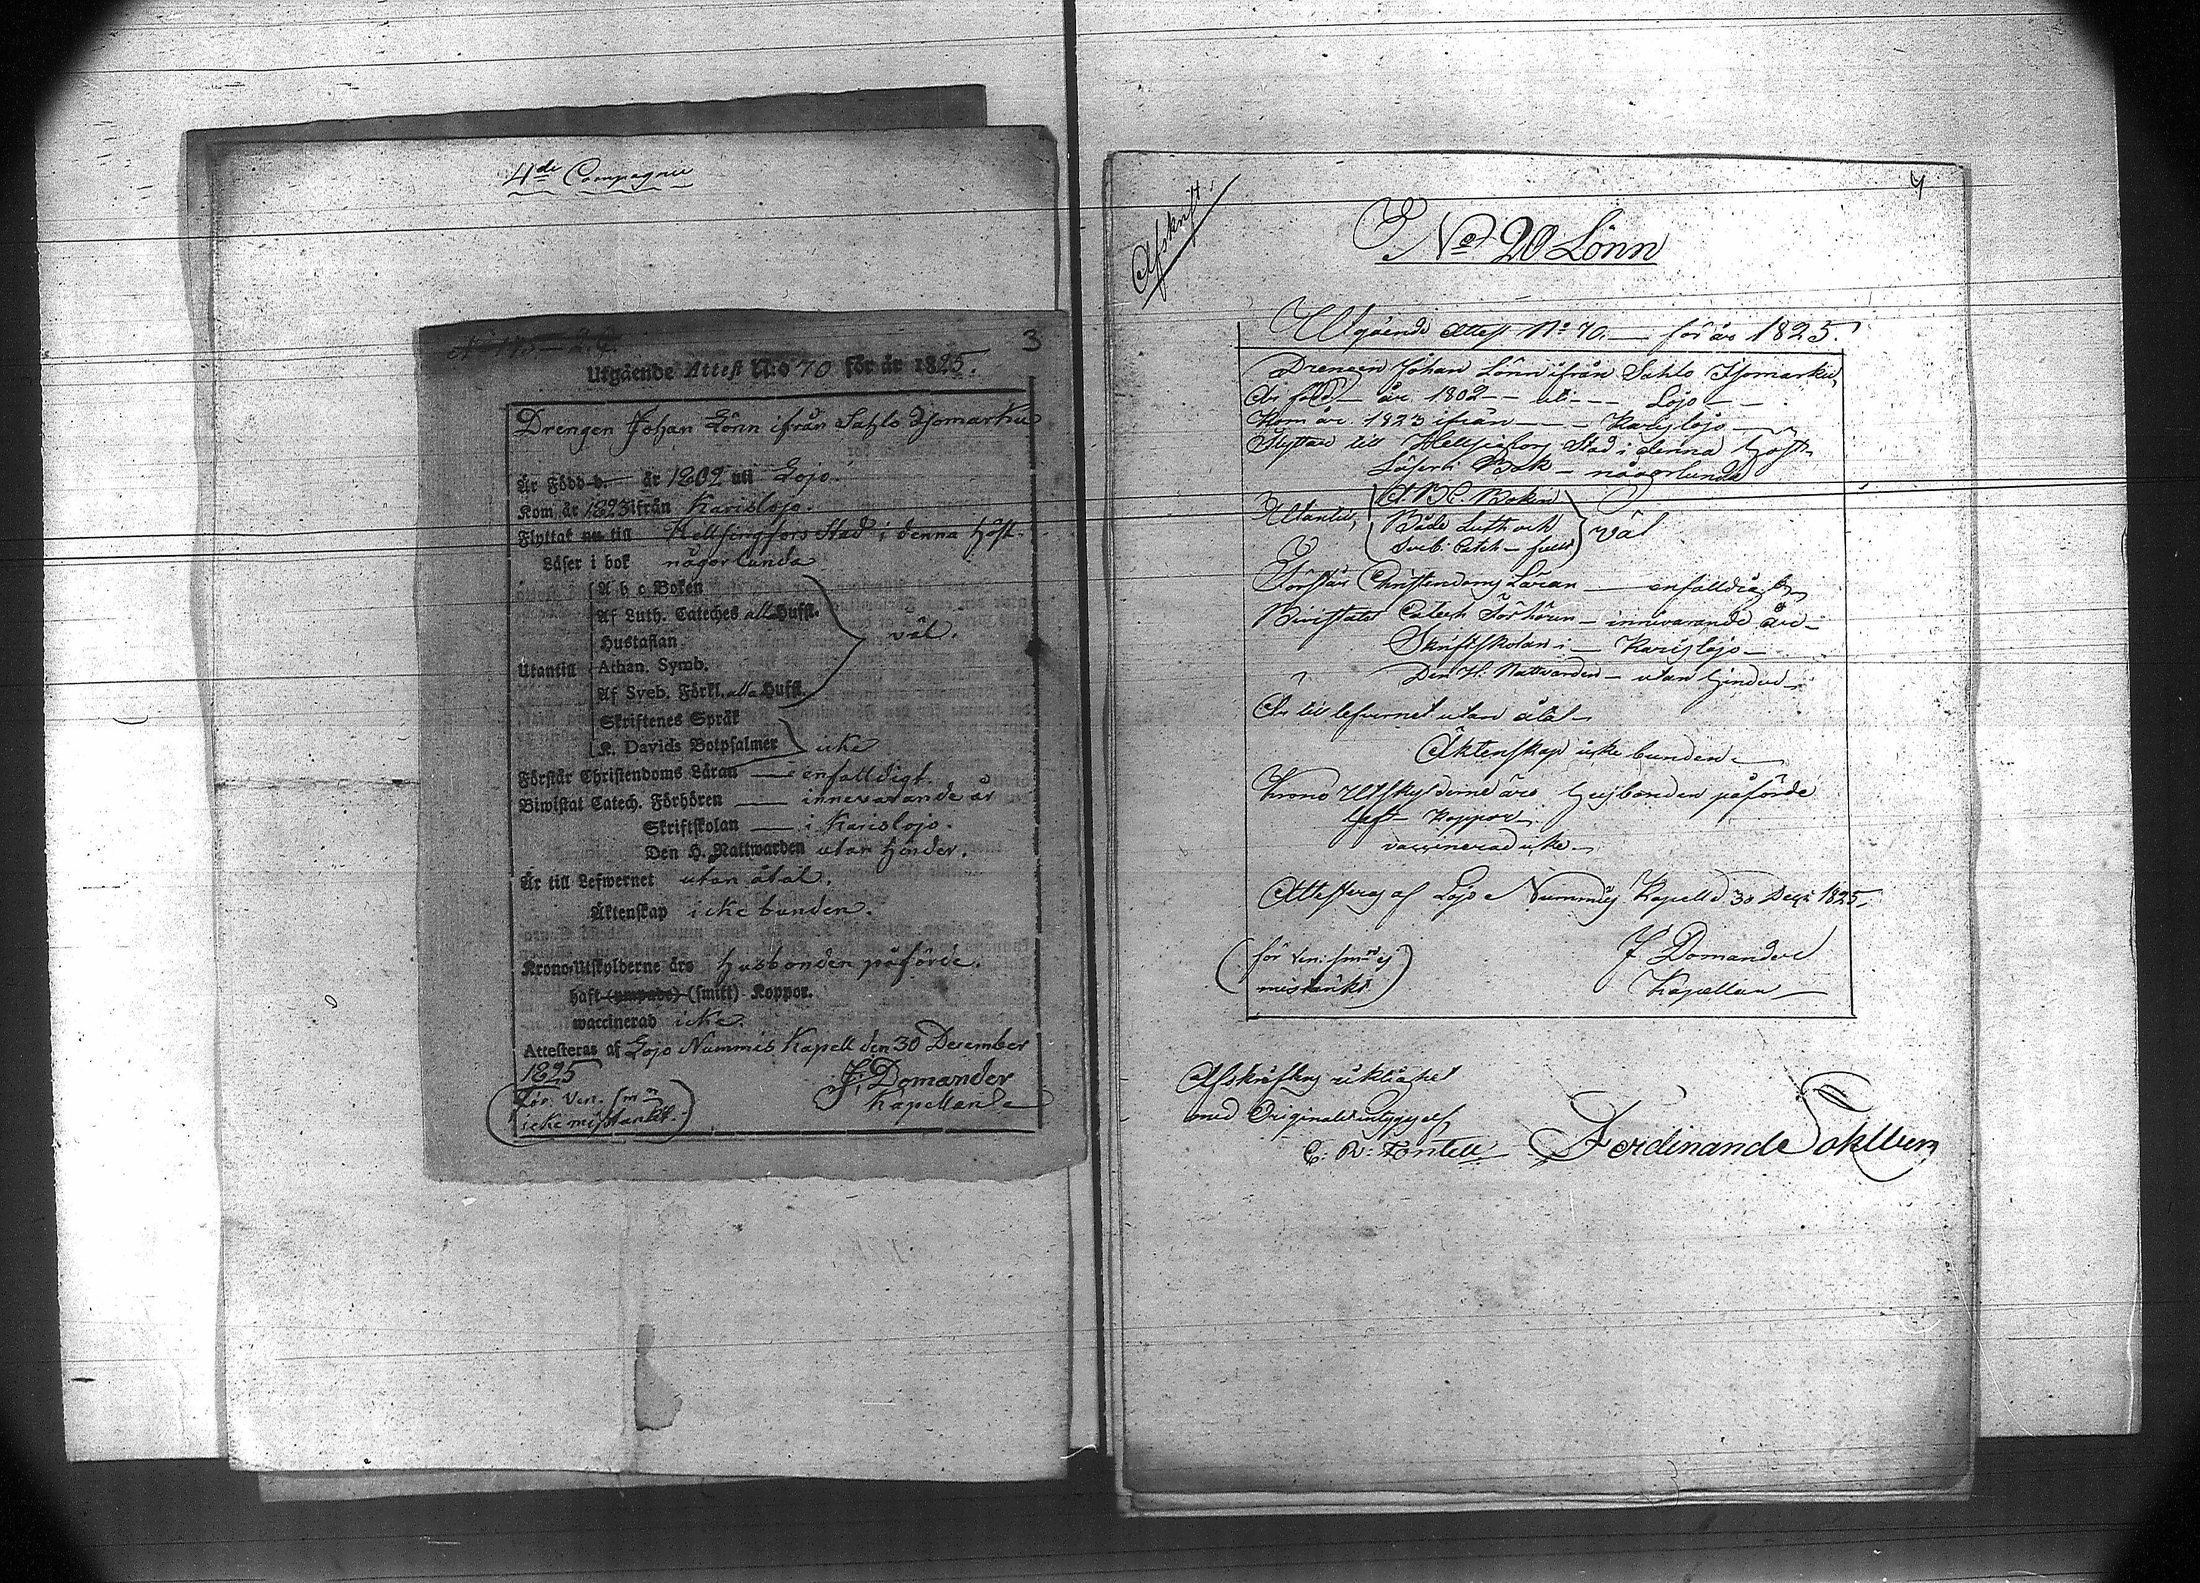 4de Compagnie
3
Utgående Attest N:o 70 för år 1825.
Drengen Johan Lönn ifrån Sahlo Isomarku
Är Född d. år 1802 uti Lojo.
Kom år 1823 ifrån Karislojo.
Flyttat nu till Hellsingfors Stad i denna höst.
Läser i bok någorlunda
A b c Boken
Af Luth. Cateches alla Hufst.
Hustaflan.
väl.
Utantill
Athan. Symb.
Af Sveb. Förkl. alla Hufst.
Skriftenes Språk
K. Davids Botpsalmer icke
Förstår Christendoms Läran — enfalldigt
Biwistat Catech. Förhören — innevarande år
Skriftskolan — i Karislojo.
Den H. Nattwarden utan hinder.
Är till Lefwernet utan åtal.
Äktenskap icke bunden.
Krono-Utskylderne äro husbonden påförde.
haft (ympade) (smitt) Koppor.
waccinerad icke.
Attesteras af Lojo Nummis Kapell den 30 December
1825
J. Domander
Kapellan
för Ven. sm
icke misstänkt.
Afskrift
4
No 20 Lönn
Utgående Attest No 70. — för år 1825.
Drengen Johan Lönn ifrån Sahlo Isomarku,
Är född — år 1802 — uti — Lojo —
Kom år 1823 ifrån — Karislojo —
Flyttar till Stad i denna höst.
Läser i Bok — någorlunda
A. B. C. Boken
Utantill, Både Luth och väl
Sveb. Catch —
Förstår Christendoms Läran — enfalldigt
Bivistatt Catech Förhören — innevarande år —
Skriftskolan i — Karislojo —
Den H. Nattvarden — utan hinder —
Är till lefvernet utan åtal —
Äktenskap icke bunden —
Krono Utskylderne äro husbonden påförde
haft Koppor —
vaccinerad icke —
Attesteras af Lojo Nummis Kapell d 30 Dec. 1825.
J Domander
Kapellan —
för Ven: sm ej
misstänkt.
Afskriftens riktighet
med Originalet intygas af
C. R: Fontell Ferdinand